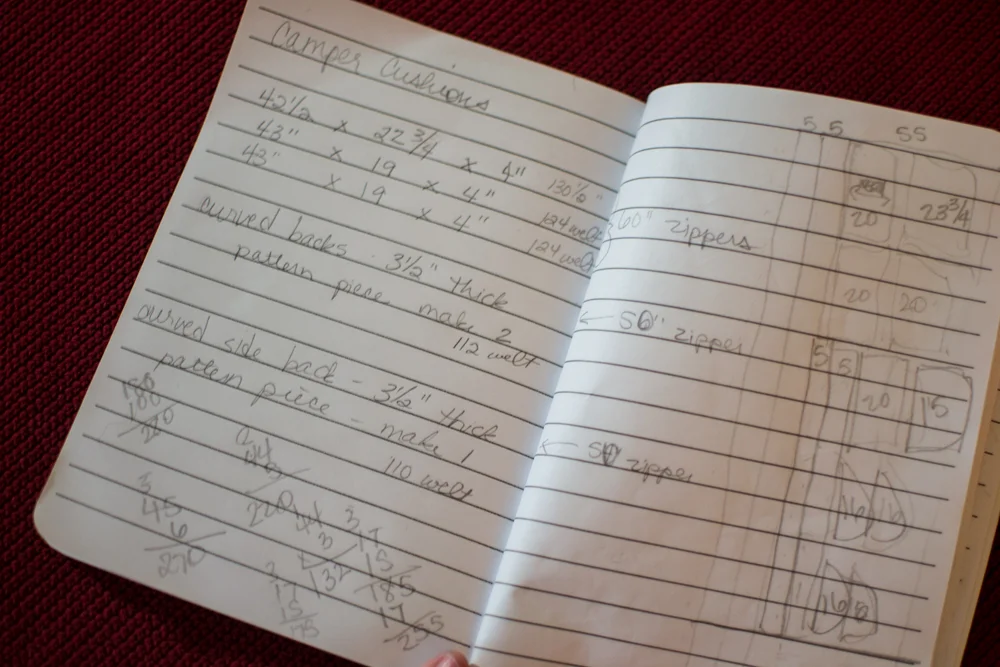 Camper Cushions
42 1/2 x 22 3/4 x 4" 130 1/2"
43" x 19 x 4" 124 welt
43" x 19 x 4" 124 welt
curved backs - 3 1/2" thick
pattern piece make 2
112 welt
curved side back - 3 1/2" thick
pattern piece - make 1
110 welt
45
6
270
132
17
15
185
17
255
17
15
5 5 55
20 23 3/4
60" zippers
20 20
← zipper
5 5
20 15
← zipper
16 16